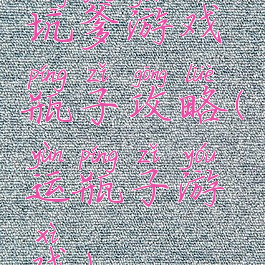 坑爹游戏
píng zǐ gōng lüè
瓶子攻略(
yùn píng zǐ yóu
运瓶子游
xì
戏)